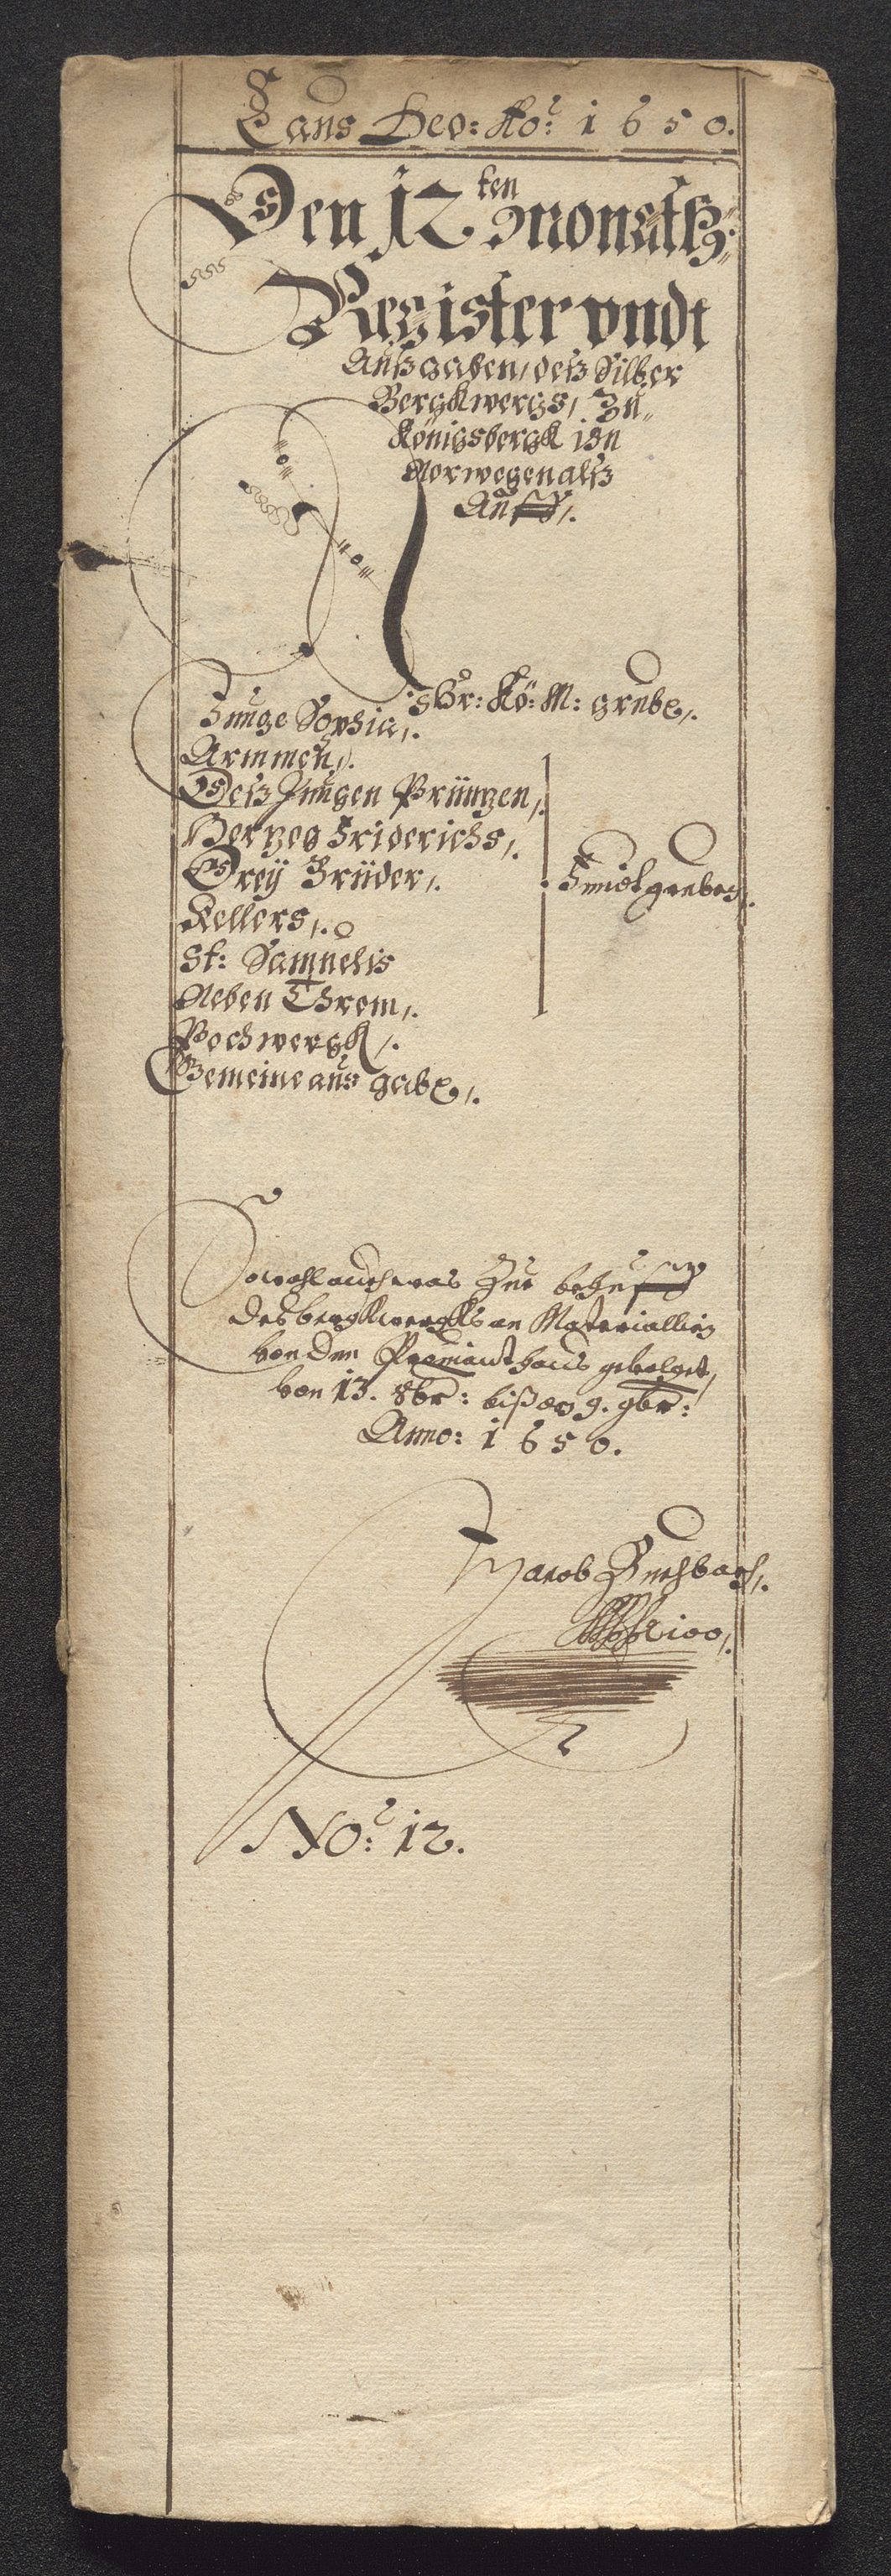 Laus Deo: Ao: 1650.
Den 12ten Monatß
Register vndt
Außgaben, deß Silber
Bergkwergs, Zu
Königsbergk inn
Norwegen alß
Auff,.
Ihr: Kö: M: grube,.
Junge Sophia,.
Armmen,.
Deß Jungen Printzen,.
Hertzog Friderichs,.
Dreÿ Brüder,.
Kellers,.
St: Samuelis
Neben Throm,.
Pochwergk,.
Gemeine aus gabe,.
Sowohl auch was Zur behuff
des bergkwergks an Materiallien
von dem Proviant haus gevolget,
von 13. 8br: biß den 9. 9br:
Anno: 1650.
Jacob
No: 12.